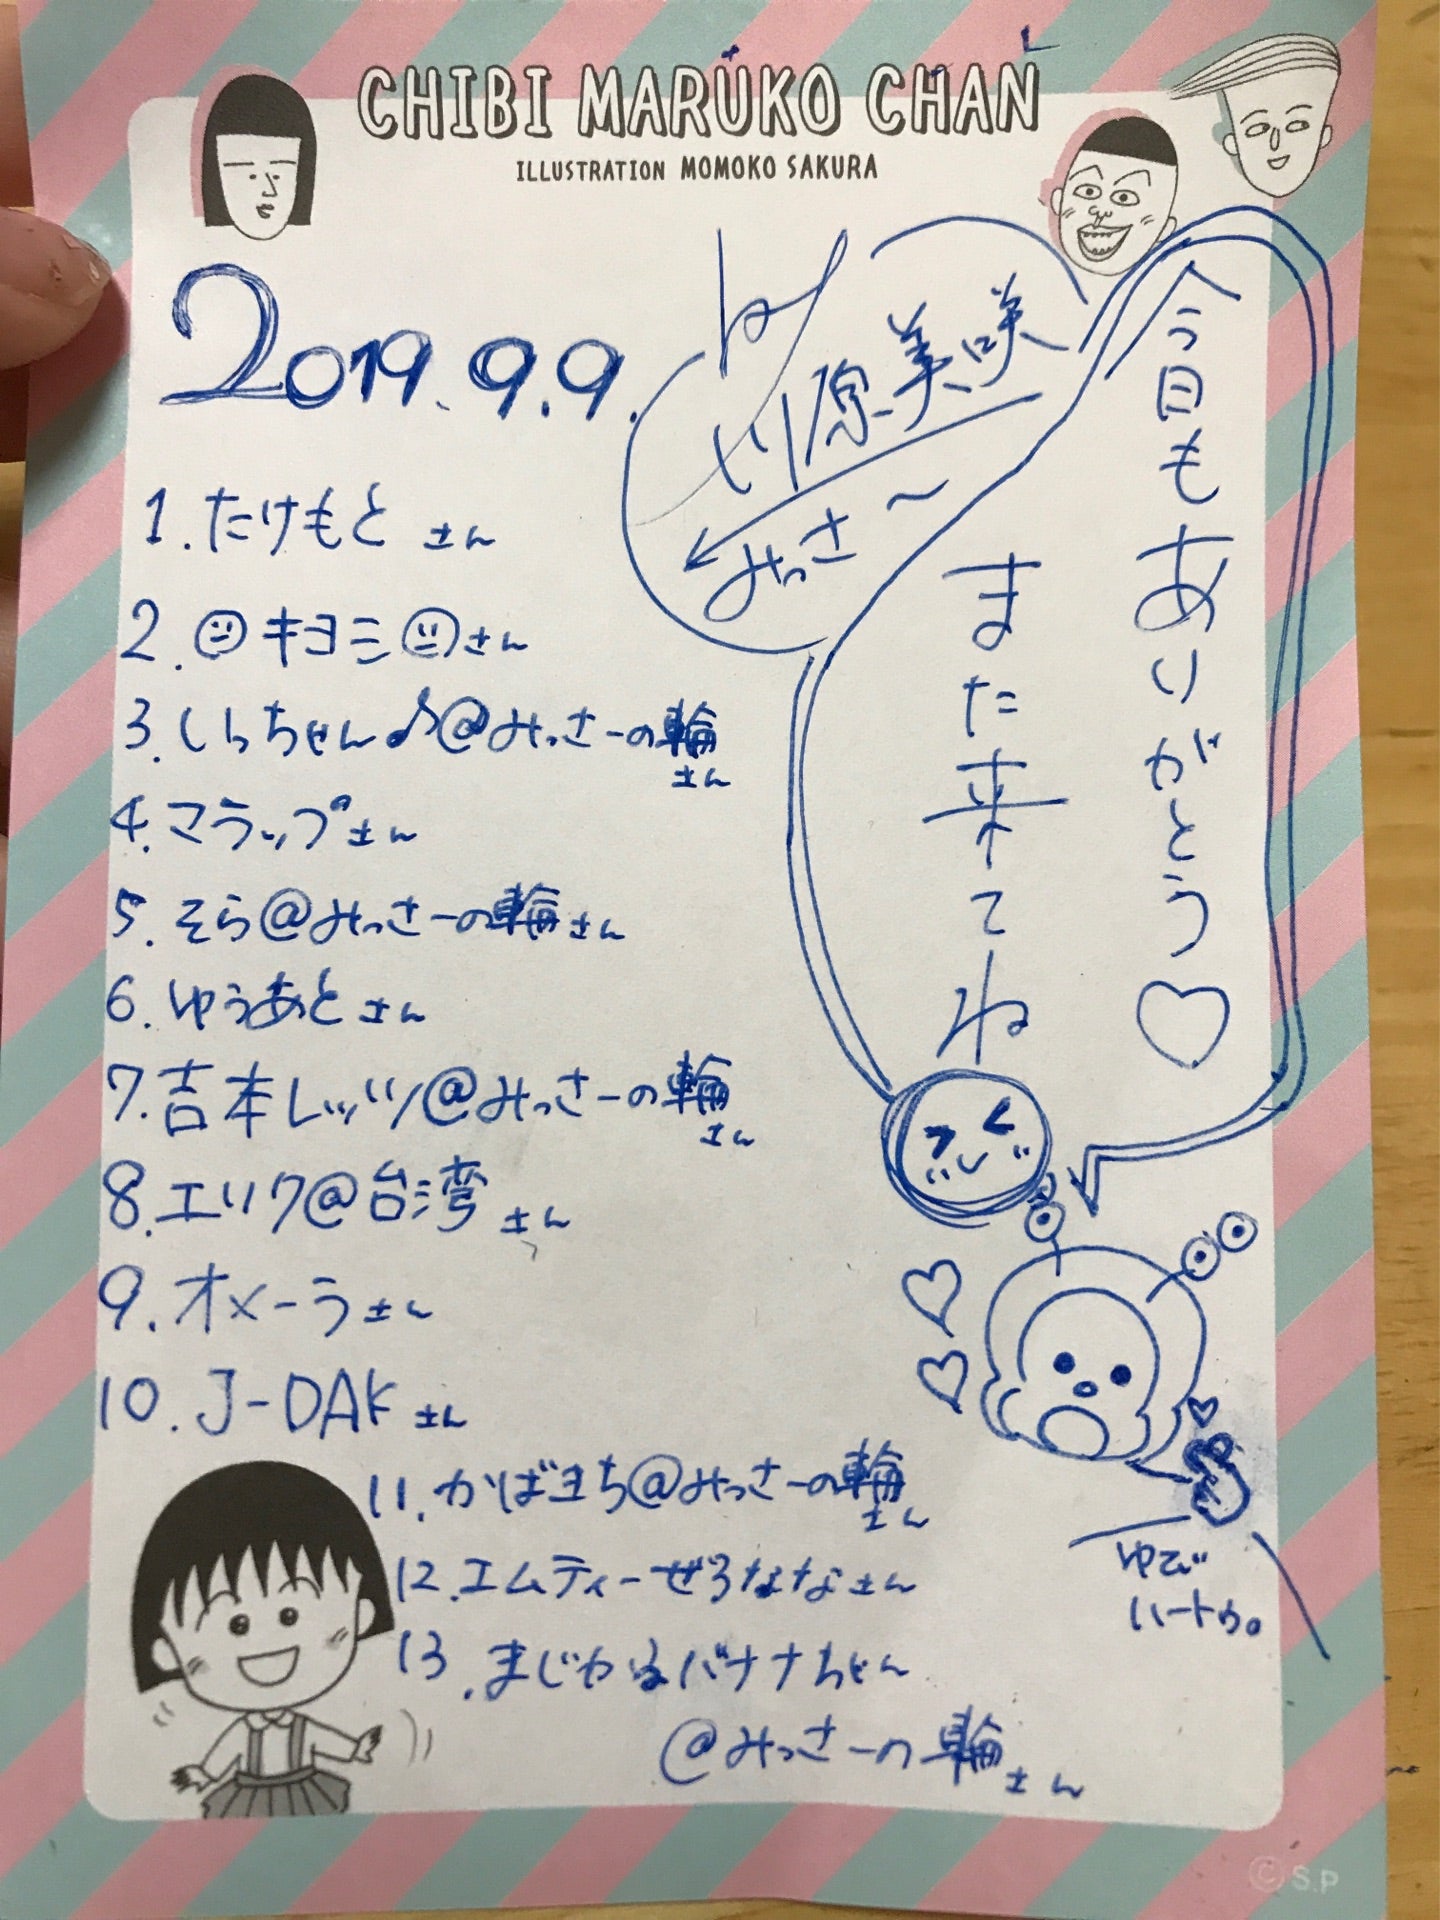 CHIBI MARUKO CHAN
ILLUSTRATION MOMOKO SAKURA
2019.9.9.
川原美咲
みっさ〜
今日もありがとう♡
また来てね
1.たけもとさん
2.キヨミさん
3.しらちゃん♪@みっさーの輪さん
4.マラップさん
5.そら@みっさーの輪さん
6.ゆうあとさん
7.吉本レッツ@みっさーの輪さん
8.エリク@台湾さん
9.オメーラさん
10.J-DAKさん
11.かばまち@みっさーの輪さん
12.エムティーぜろななさん
13.まじかるバナナちゃん
@みっさーの輪さん
ゆび
ハートゥ。
©S.P